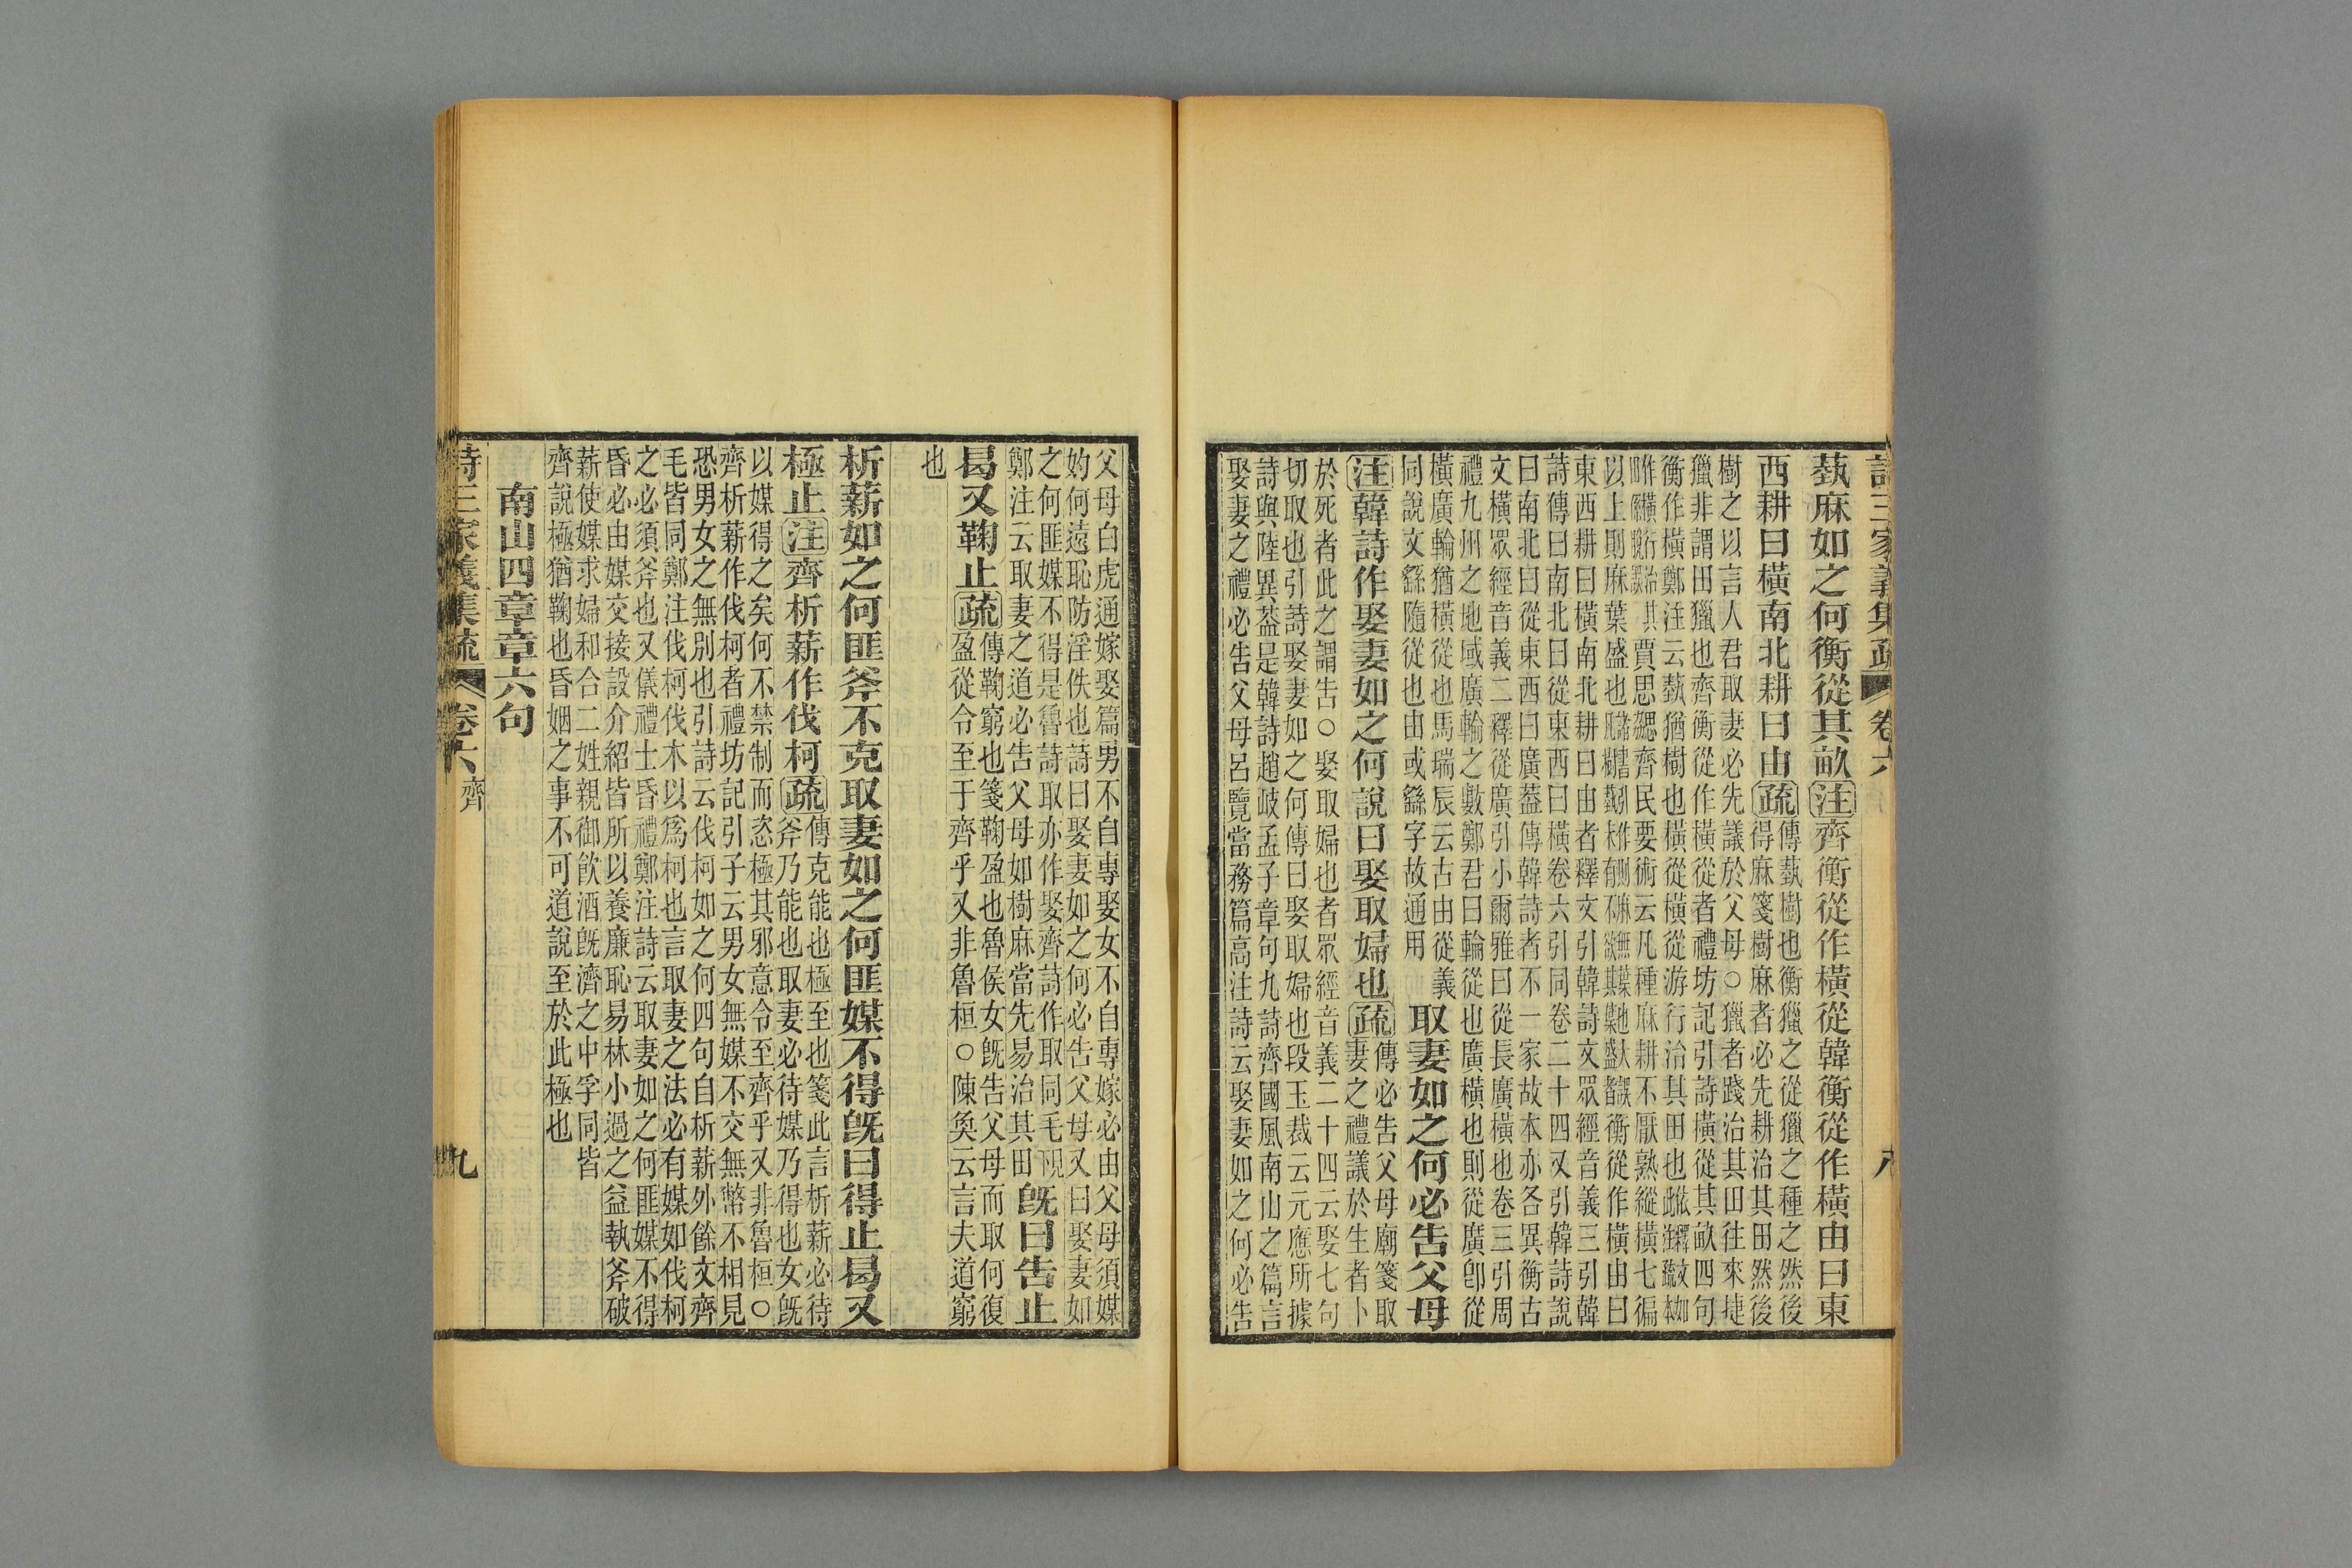 詩三家義集疏 卷六 八
蓺麻如之何衡從其畝注齊衡從作橫從韓衡從作橫由曰東
西耕曰橫南北耕曰由疏傳蓺樹也衡獵之從獵之種之然後
得麻箋樹麻者必先耕治其田然後
樹之以言人君取妻必先議於父母○獵者踐治其田往來捷
獵非謂田獵也齊衡從作橫從者禮坊記引詩橫從其畝四句
衡作橫鄭注云蓺猶樹也橫從橫從游行治其田也
賈思勰齊民要術云凡種麻耕不厭熟縱橫七徧
以上則麻葉盛也衡從作橫由曰
東西耕曰橫南北耕曰由者釋文引韓詩文眾經音義三引韓
詩傳曰南北曰從東西曰橫卷六引同卷二十四又引韓詩說
曰南北曰從東西曰廣葢傳韓詩者不一家故本亦各異衡古
文橫眾經音義二釋從廣引小爾雅曰從長廣橫也卷三引周
禮九州之地域廣輪之數鄭君曰輪從也廣橫也則從廣卽從
橫廣輪猶橫從也馬瑞辰云古由從義
同說文繇隨從也由或繇字故通用
取妻如之何必告父母
注韓詩作娶妻如之何說曰娶取婦也疏傳必告父母廟箋取
妻之禮議於生者卜
於死者此之謂告○娶取婦也者眾經音義二十四云娶七句
切取也引詩娶妻如之何傳曰娶取婦也段玉裁云元應所據
詩與陸異葢是韓詩趙岐孟子章句九詩齊國風南山之篇言
娶妻之禮必告父母呂覽當務篇高注詩云娶妻如之何必告
父母白虎通嫁娶篇男不自專娶女不自專嫁必由父母須媒
妁何遠恥防淫佚也詩曰娶妻如之何必告父母又曰娶妻如
之何匪媒不得是魯詩取亦作娶齊詩作取同毛
鄭注云取妻之道必告父母如樹麻當先易治其田
旣曰告止
曷又鞠止疏傳鞠窮也箋鞠盈也魯侯女旣告父母而取何復
盈從令至于齊乎又非魯桓○陳奐云言夫道窮
也
析薪如之何匪斧不克取妻如之何匪媒不得旣曰得止曷又
極止注齊析薪作伐柯疏傳克能也極至也箋此言析薪必待
斧乃能也取妻必待媒乃得也女旣
以媒得之矣何不禁制而恣極其邪意令至齊乎又非魯桓○
齊析薪作伐柯者禮坊記引子云男女無媒不交無幣不相見
恐男女之無別也引詩云伐柯如之何四句自析薪外餘文齊
毛皆同鄭注伐柯伐木以爲柯也言取妻之法必有媒如伐柯
之必須斧也又儀禮士昏禮鄭注詩云取妻如之何匪媒不得
昏必由媒交接設介紹皆所以養廉恥易林小過之益執斧破
薪使媒求婦和合二姓親御飮酒旣濟之中孚同皆
齊說極猶鞠也昏姻之事不可道說至於此極也
南山四章章六句
詩三家義集疏 卷六 齊 九